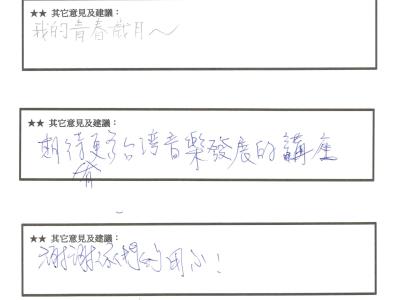 ★★ 其它意見及建議：
我的青春歲月～
★★ 其它意見及建議：
期待有更多台灣音樂發展的講座
★★ 其它意見及建議：
謝謝你們的用心！